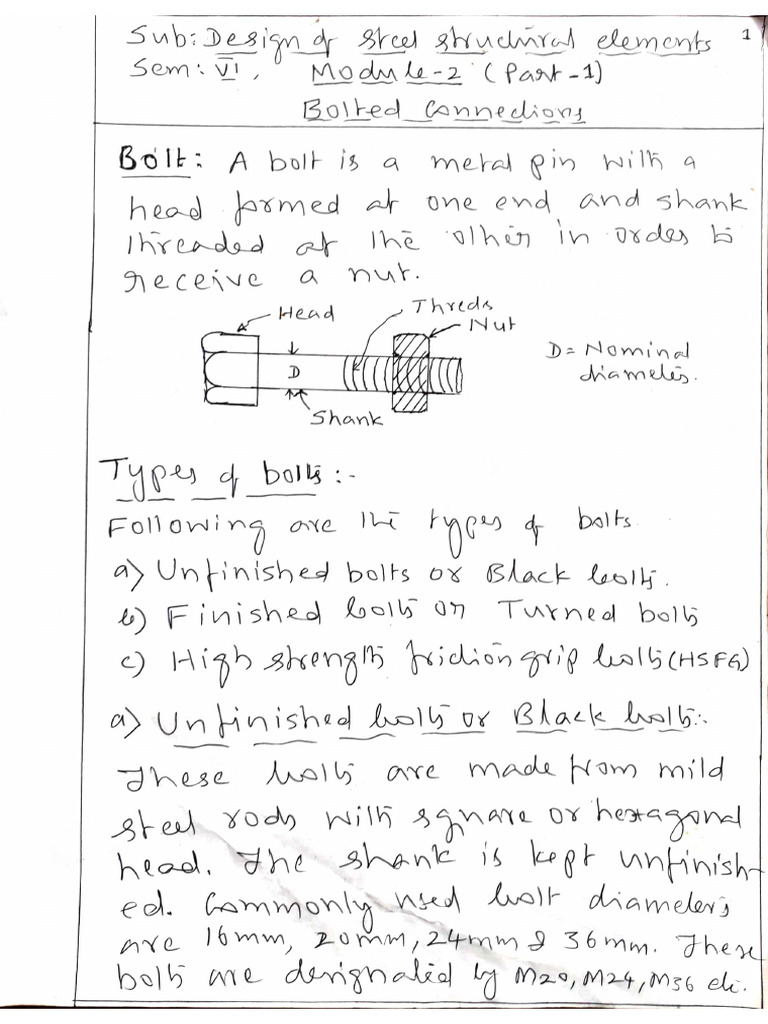 Sub: Design of steel structural elements 1
Sem: VI, Module-2 (Part-1)
Bolted Connections
Bolt: A bolt is a metal pin with a
head formed at one end and shank
threaded at the other in order to
receive a nut.
Head
Threds
Nut
D
D = Nominal
diameter.
Shank
Types of bolts:-
Following are the types of bolts
a) Unfinished bolts or Black bolts.
b) Finished bolts or Turned bolts
c) High strength friction grip bolts (HSFG)
a) Unfinished bolts or Black bolts:-
These bolts are made from mild
steel rods with square or hexagonal
head. The shank is kept unfinish-
ed. Commonly used bolt diameters
are 16mm, 20mm, 24mm & 36mm. These
bolts are designated by M20, M24, M36 etc.